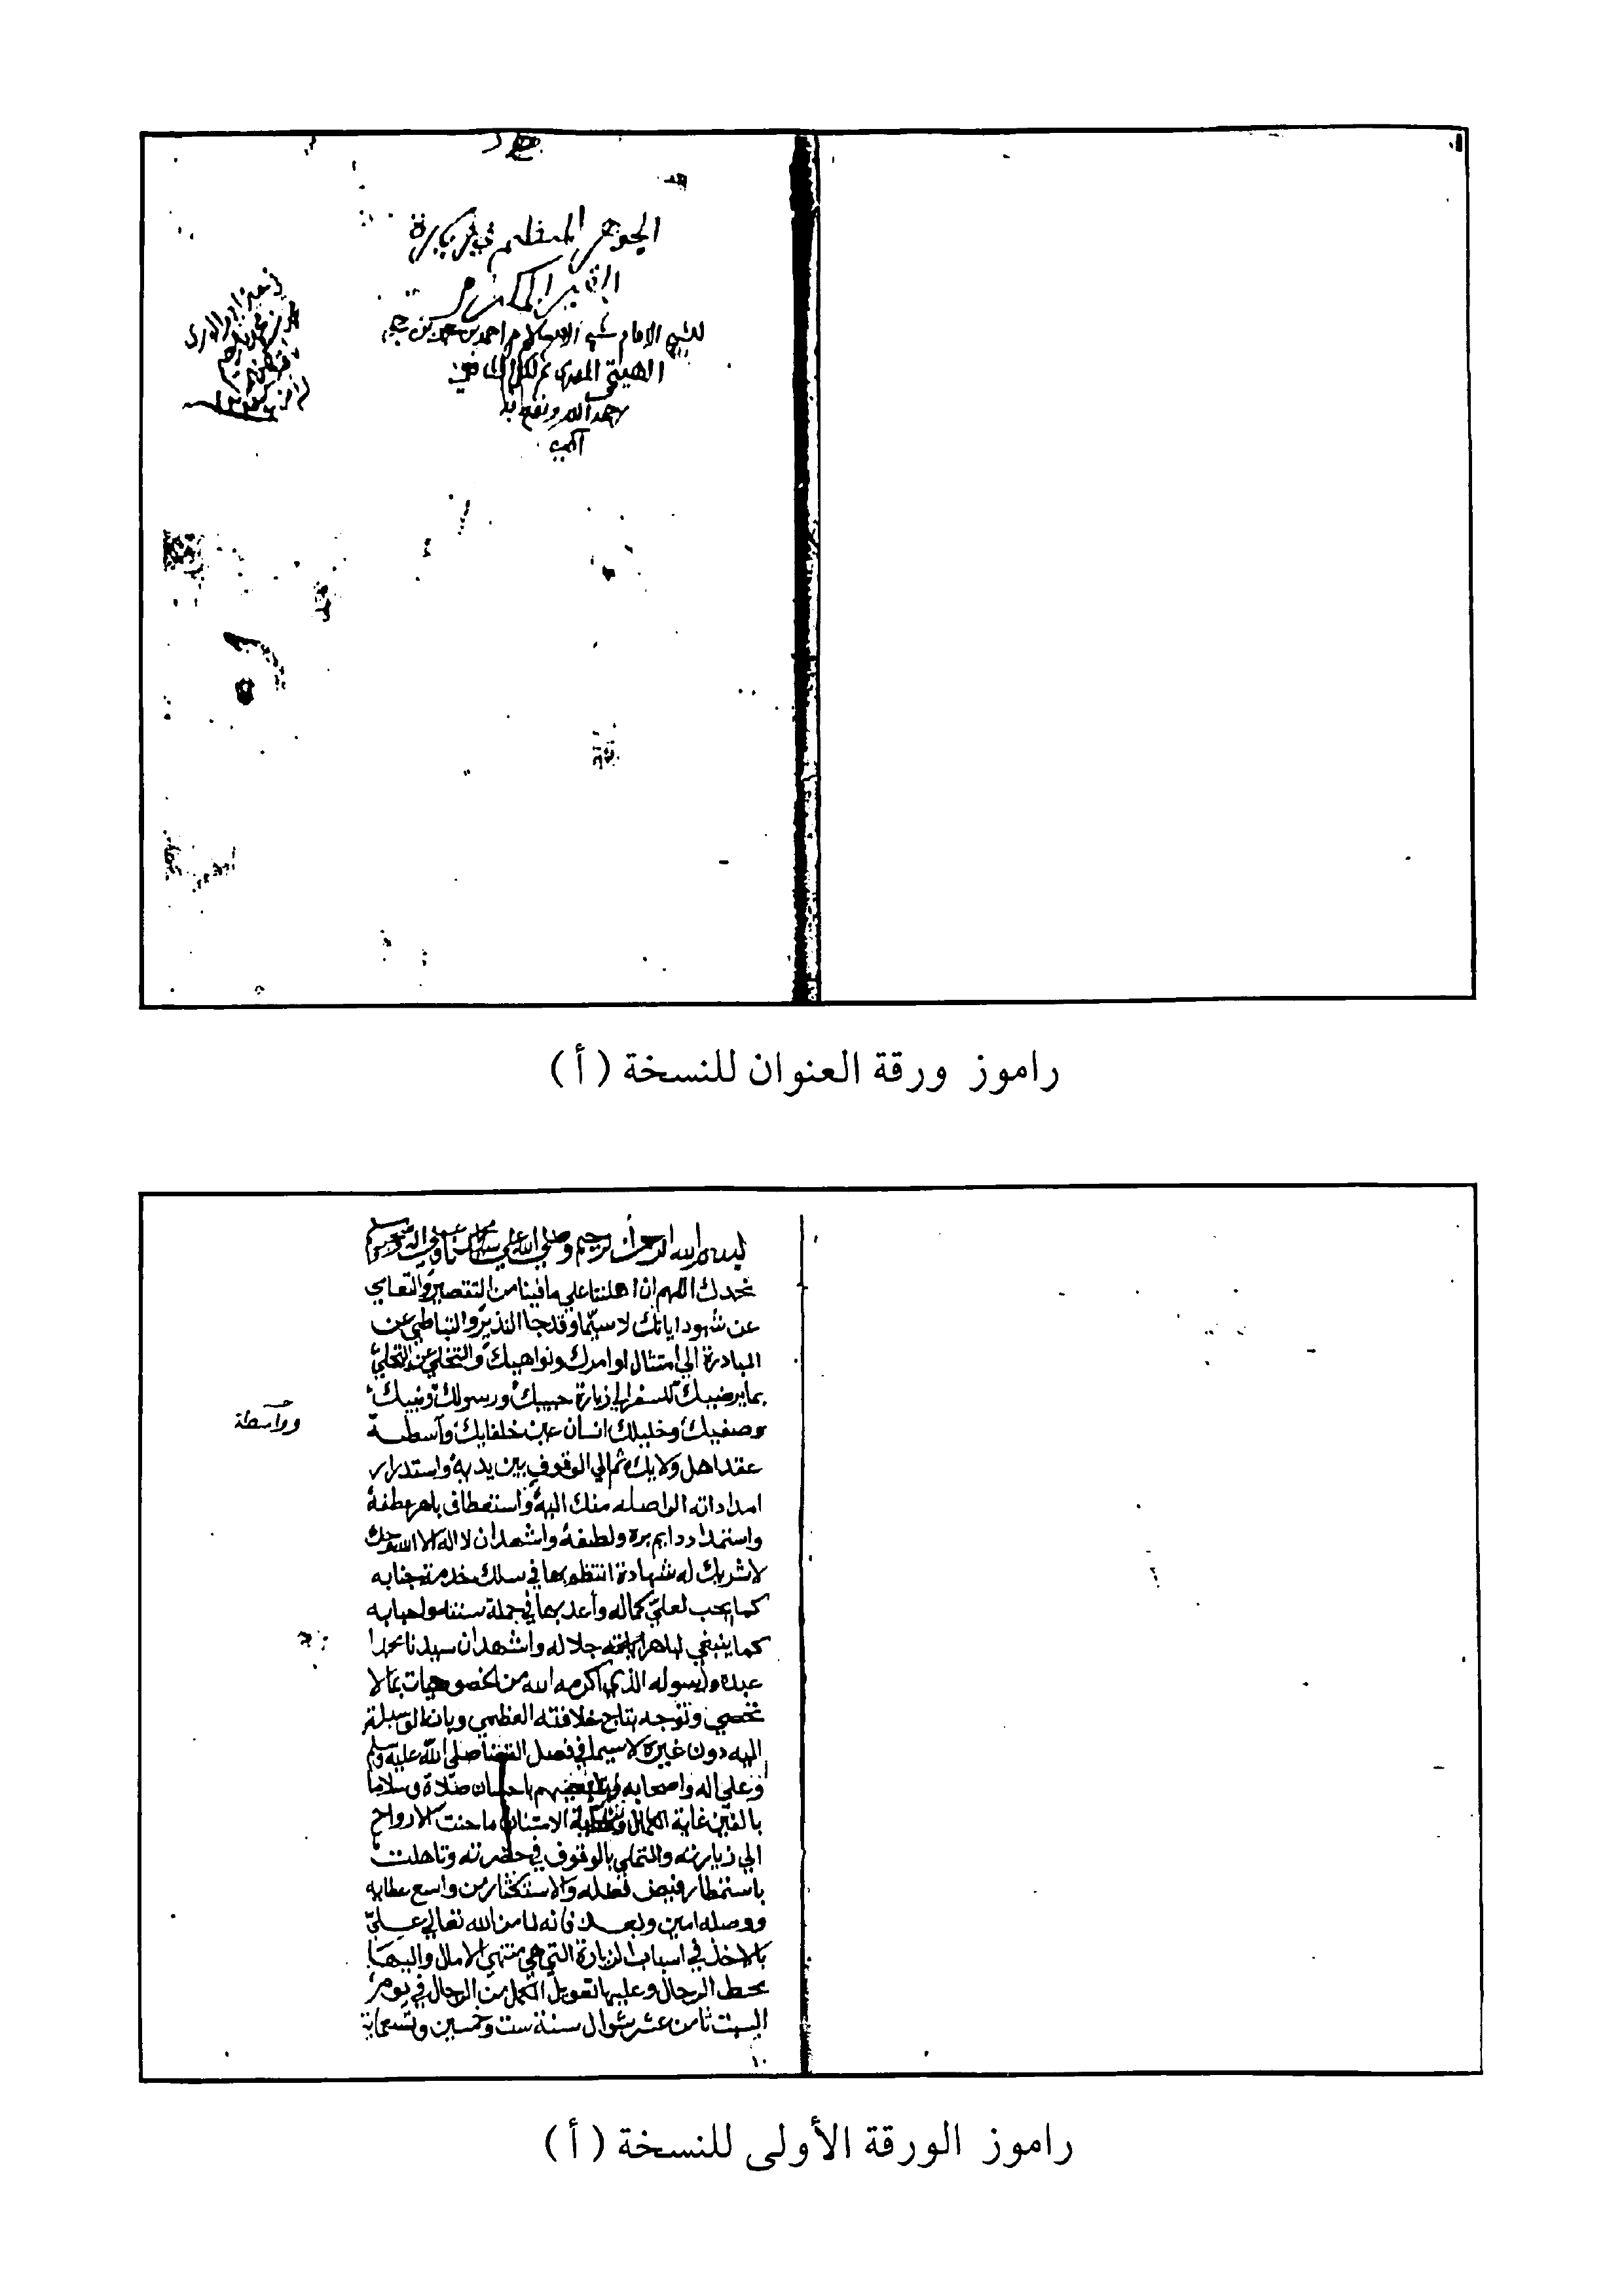 الجوهر المنظم في زيارة
القبر المكرم
للشيخ الامام شيخ الاسلام احمد بن محمد بن حجر
الهيتمي المصري ثم المكي الشافعي
رحمه الله ونفع به
آمين
راموز ورقة العنوان للنسخة (أ)
بسم الله الرحمن الرحيم وصلى الله على سيدنا محمد وآله وصحبه وسلم
نحمدك اللهم ان اهلتنا على ما فينا من التقصير والتعامي
عن شهود اياتك لا سيما وقد جا النذير والتباطي عن
المبادرة الى امتثال اوامرك ونواهيك والتخلي عن التحلي
بما يرضيك للسفر الى زيارة حبيبك ورسولك ونبيك
وصفيك وخليلك انسان عين خلفايك وآسطة
وواسطة
عقد اهل ولايك ثم الى الوقوف بين يديه واستدرار
امداداته الواصله منك اليه واستعطاف باهر عطفه
واستمداد دايم بره ولطيفه واشهد ان لا اله الا الله وحدك
لا شريك له شهادة انتظم بها في سلك خدمة جنابه
كما يجب لعلي كماله وأعد بها في جملة سننه واحبابه
كما ينبغي لباهر جلاله واشهد ان سيدنا محمدا
عبده ورسوله الذي اكرمه الله من الخصوصيات بما لا
يحصي وتوجه بتاج خلافته العظمي وبانه الوسيلة
اليه دون غيره لا سيما في فصل القضا صلى الله عليه وسلم
وعلى اله واصحابه وتابعيهم باحسان صلاة وسلاما
بالغين غاية الكمال الامتنان ما حنت الارواح
الى زيارته والتملي بالوقوف في حضرته وتاهلت
باستمطار فيض فضله والاستكثار من واسع عطايه
ووصله امين وبعد فانه لما من الله تعالى علي
بالاخذ في اسباب الزيارة التي هي منتهي الامال واليها
محط الرحال وعليها تعويل الكمل من الرجال في يوم
السبت ثامن عشر شوال سنة ست وخمسين وتسعماية
راموز الورقة الأولى للنسخة (أ)